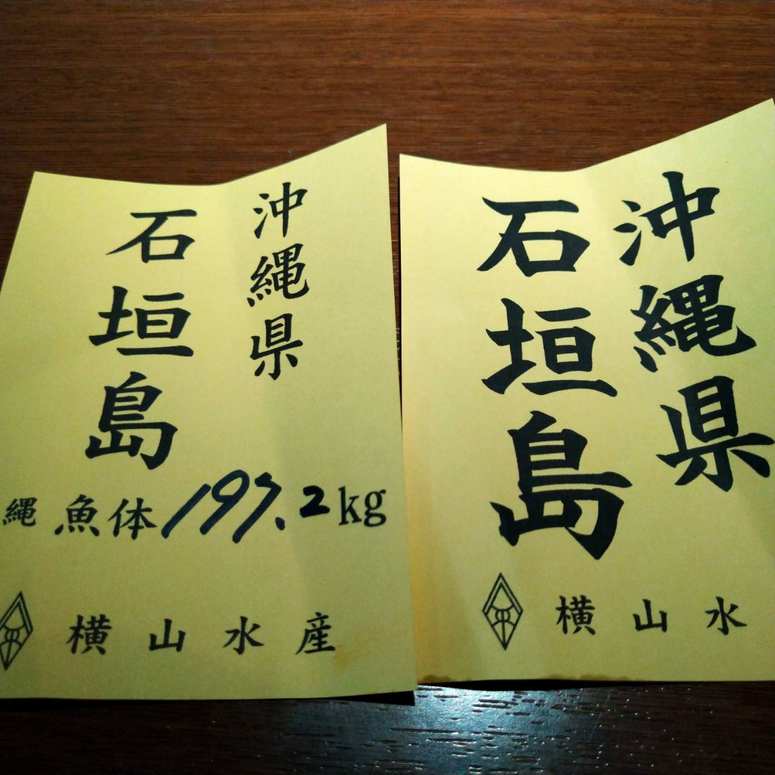 沖縄県
石垣島
縄 魚体 197.2kg
横山水産
沖縄県
石垣島
横山水